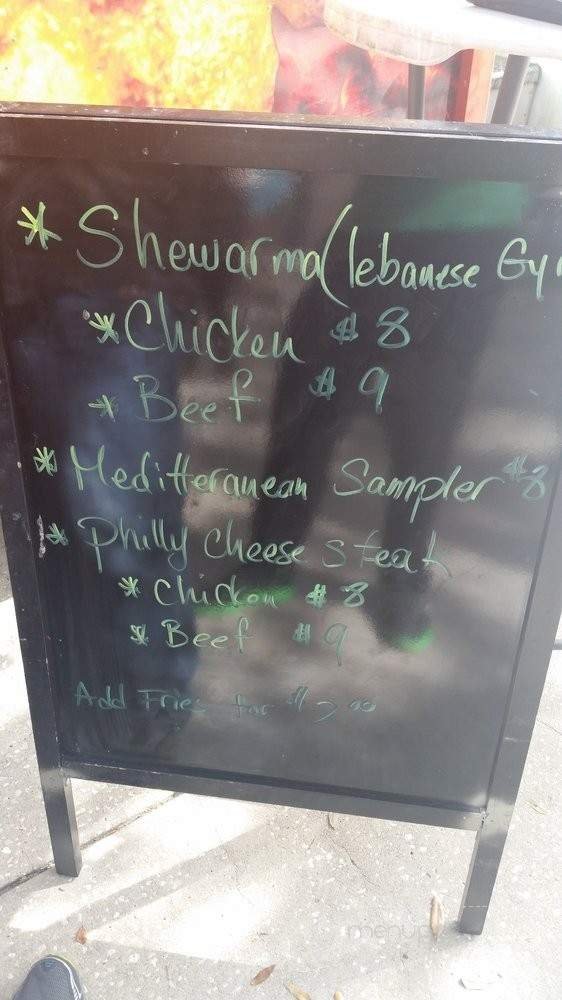 * Shewarma (lebanese Gy
* Chicken $8
* Beef $9
* Meditteranean Sampler $8
* Philly cheese steak
* Chicken $8
* Beef $9
Add Fries for $2.00